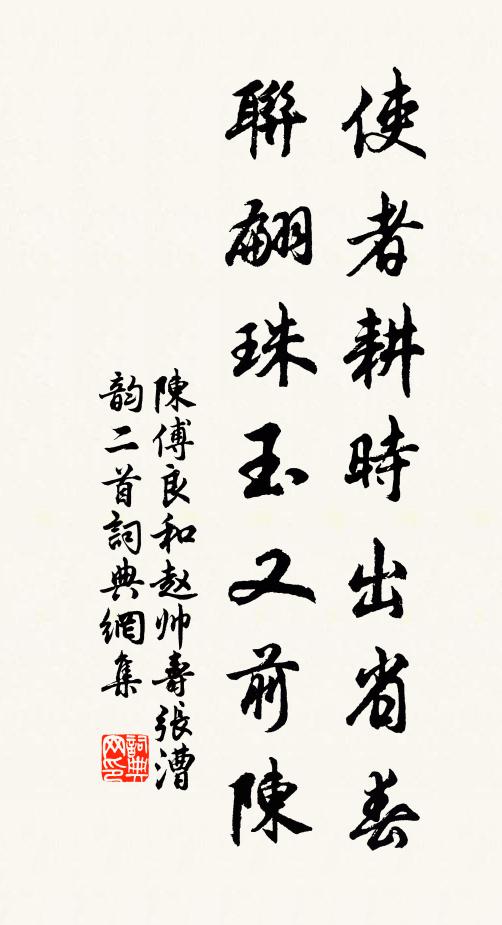 使者耕時出省春
聯翩珠玉又前陳
陳傅良和赵帅壽張漕
韵二首詞典網集
詞典网印